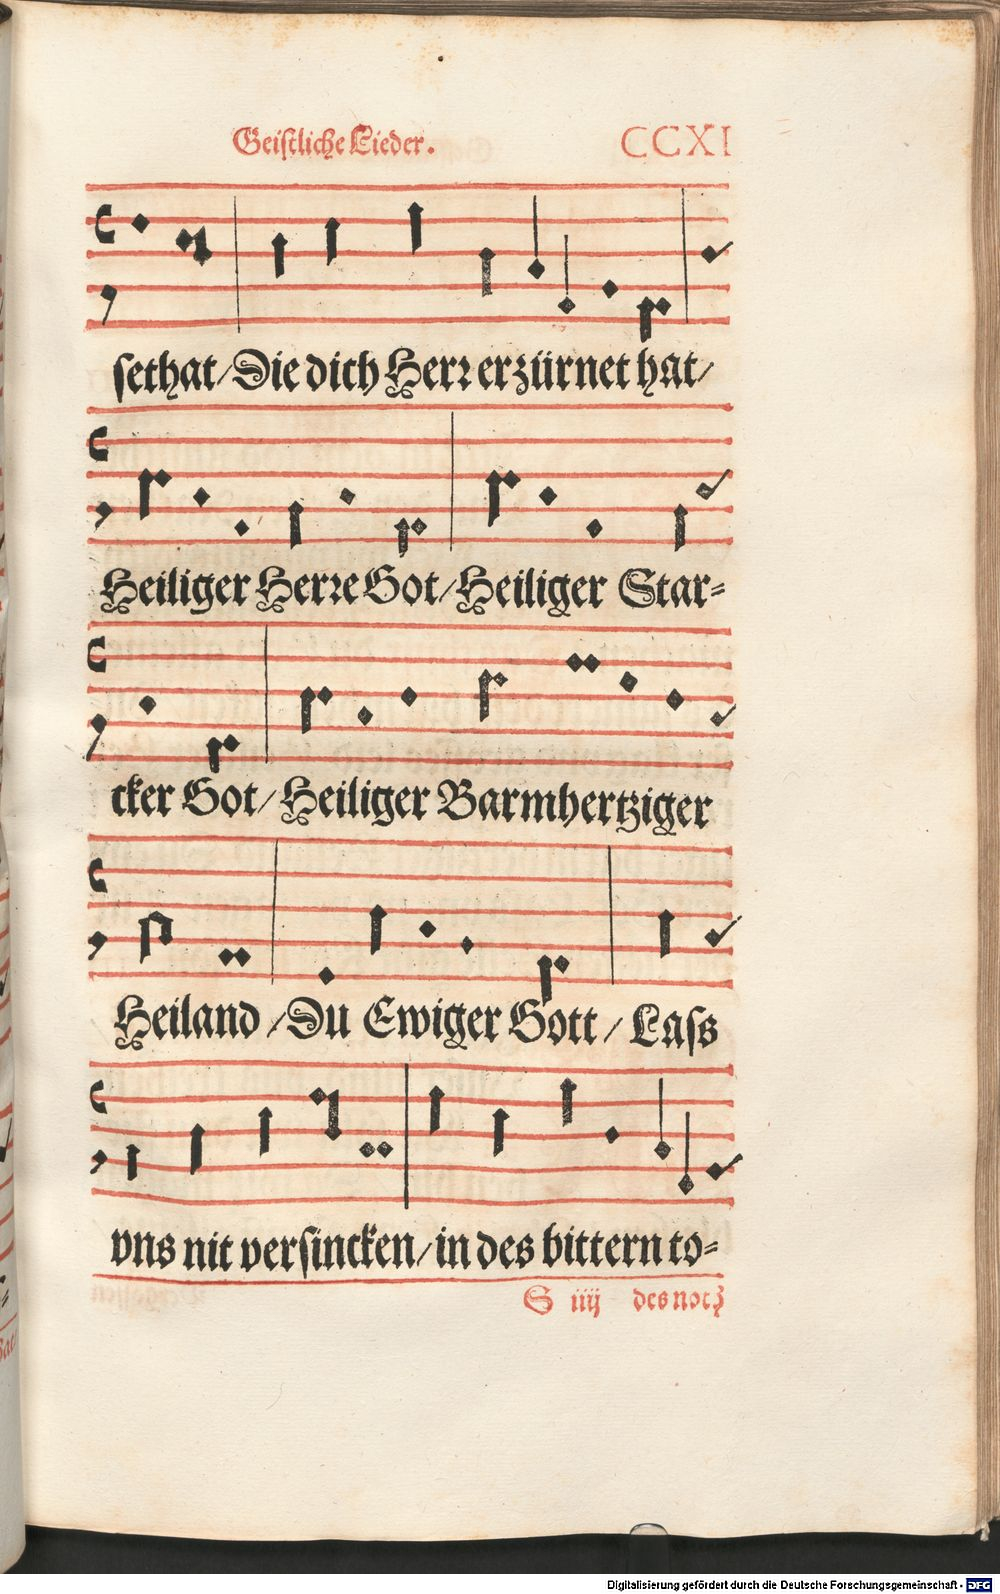 Geistliche Lieder. CCXI
sethat/Die dich Herꝛ erzürnet hat/
Heiliger Herꝛe Got/Heiliger Star⸗
cker Got/Heiliger Barmhertziger
Heiland/Du Ewiger Gott/Lass
vns nit versincken/in des bittern to⸗
S iiij des not
Digitalisierung gefördert durch die Deutsche Forschungsgemeinschaft - DFG